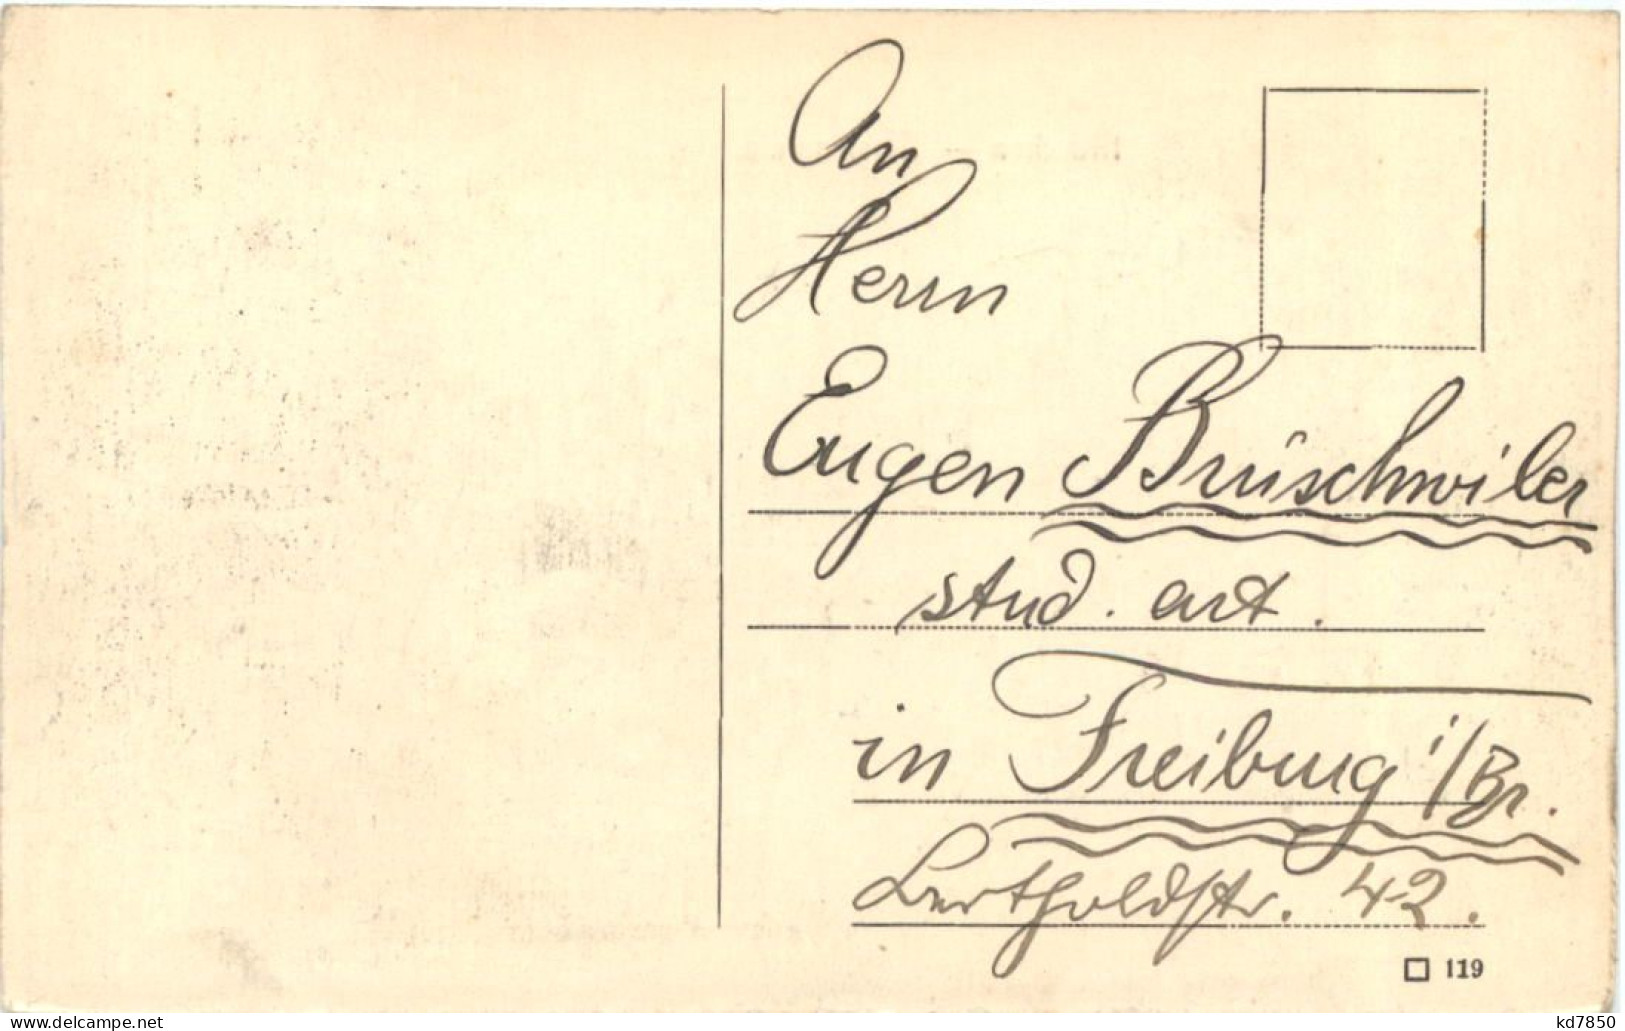 An
Herrn
Eugen Brüschwiler
stud. art.
in Freiburg i/Br.
Bertholdstr. 42.
119
kd7850